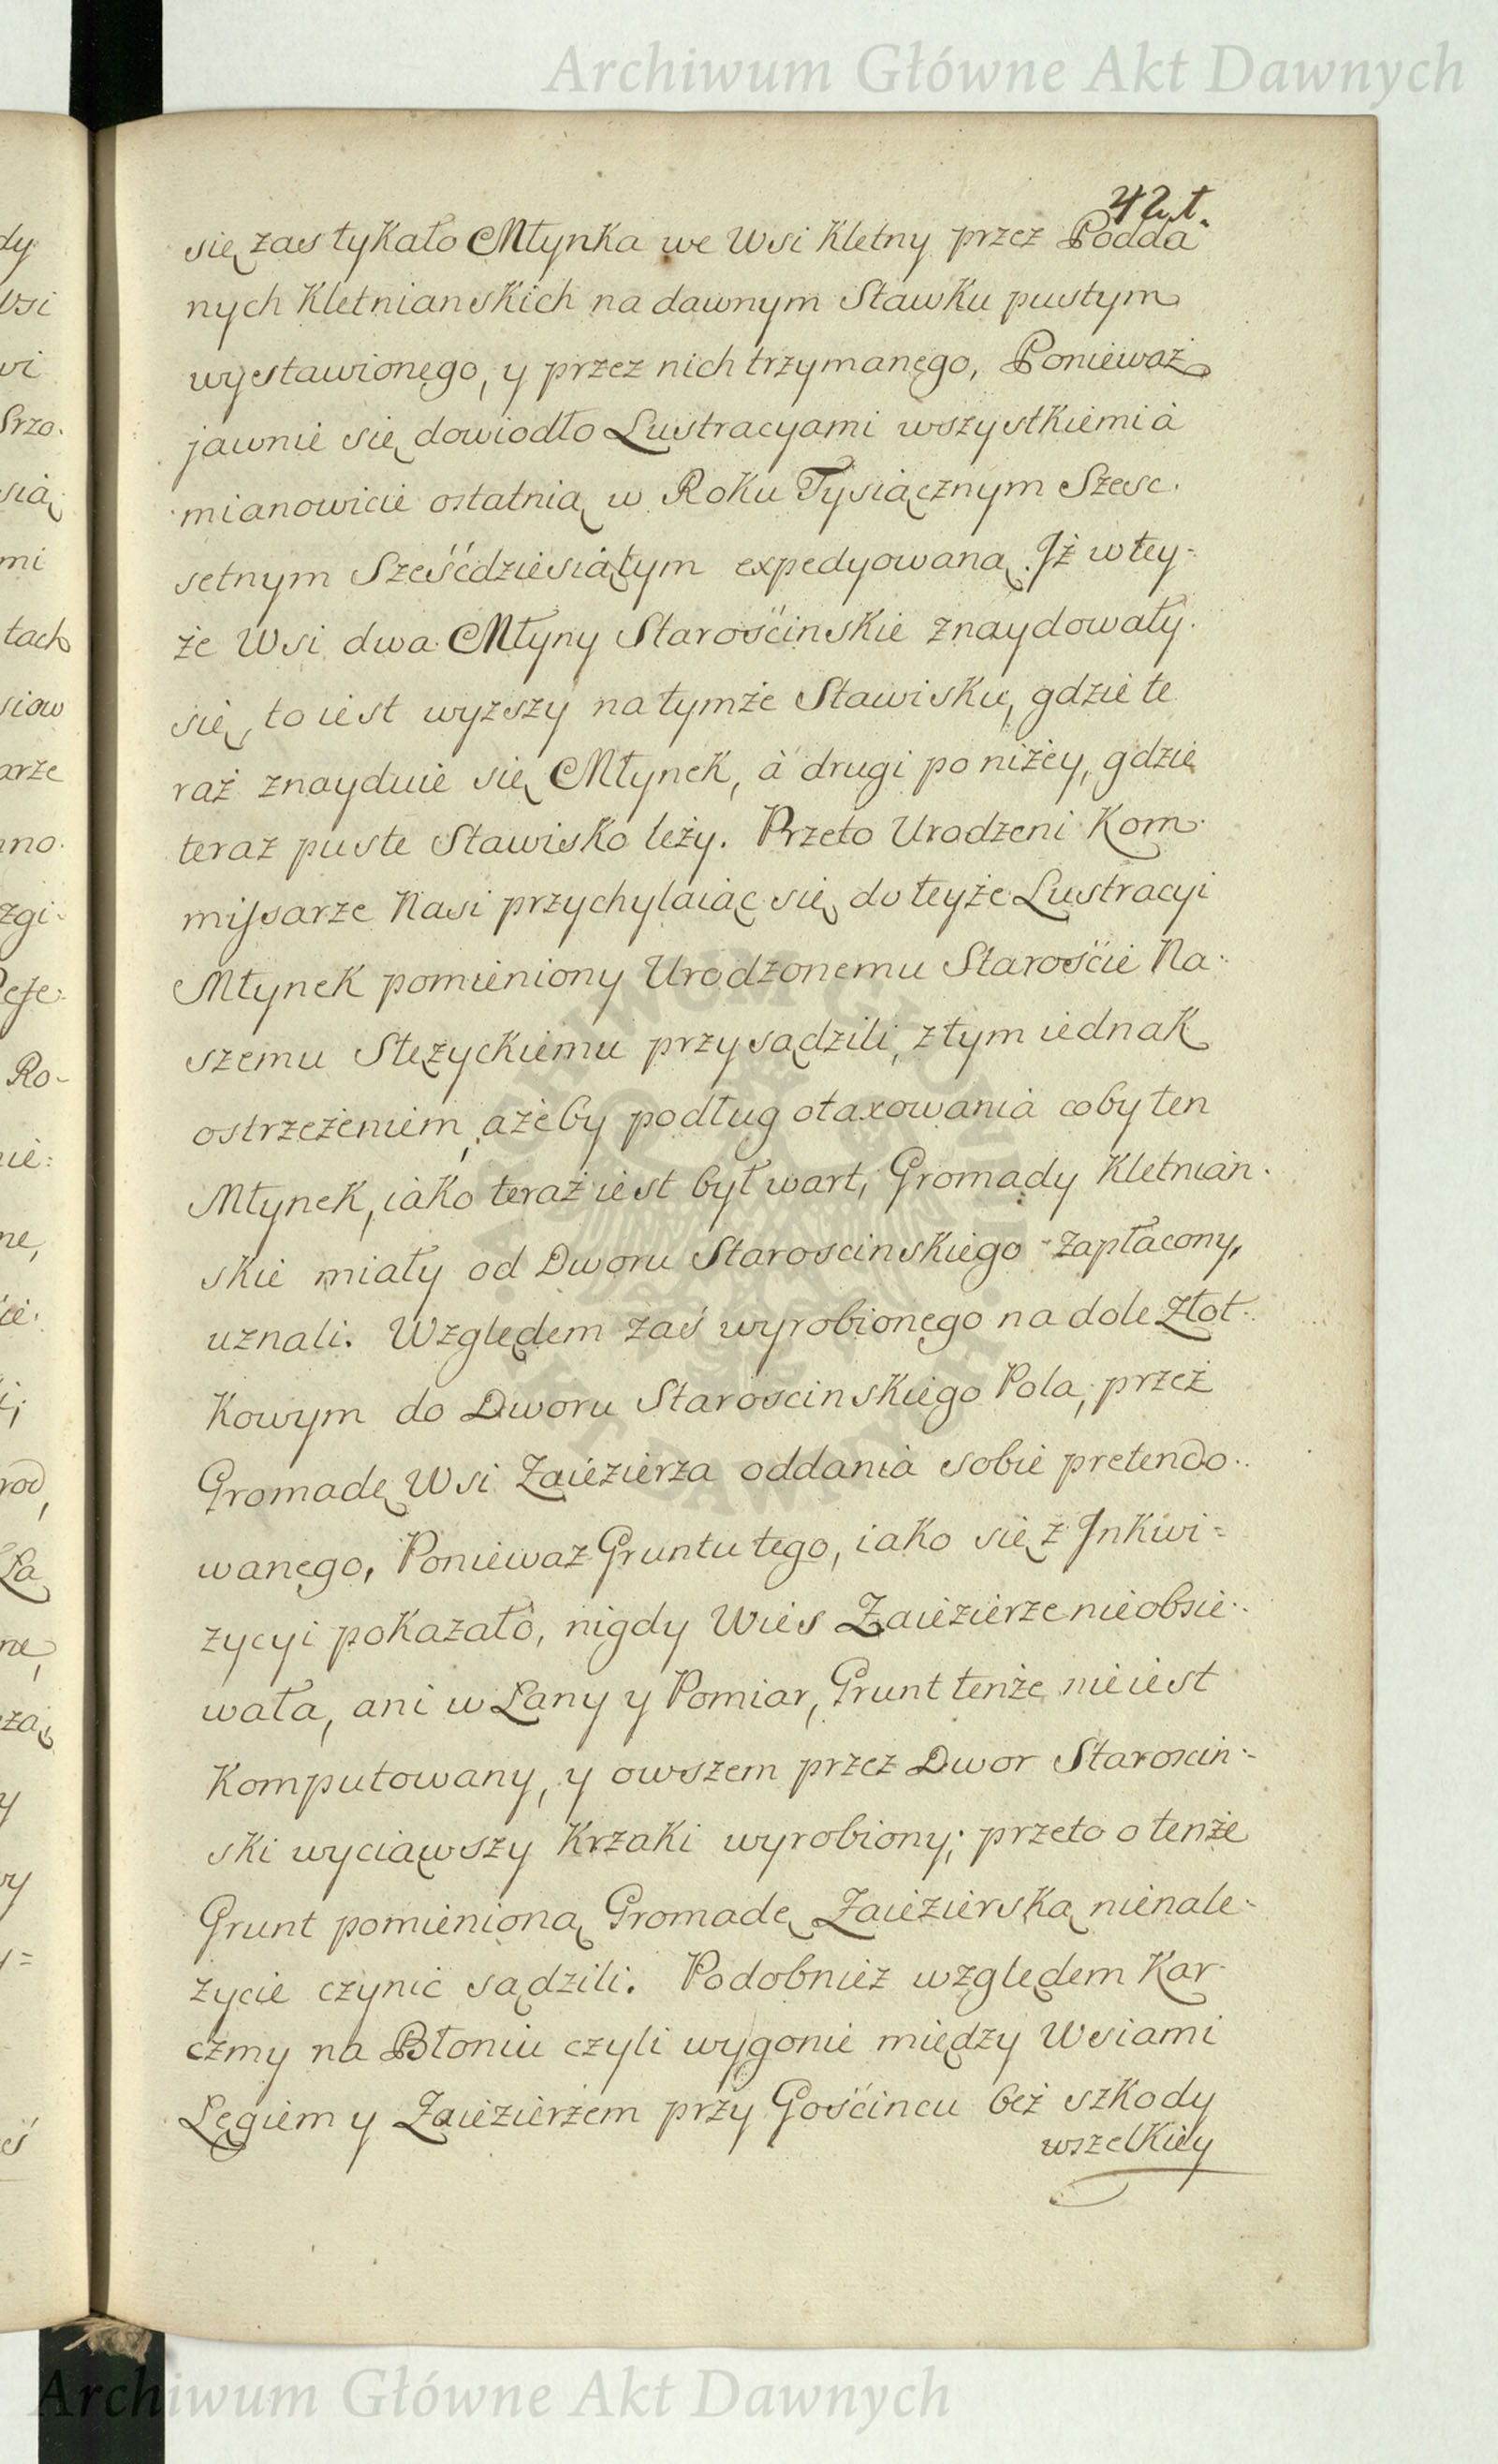 Archiwum Główne Akt Dawnych
421.
się zas tykało Młynka we Wsi Kletny przez Podda
nych Kletnianskich na dawnym Stawku pustym
wystawionego, y przez nich trzymanego, Ponieważ
jawnie się dowiodło Lustracyami wszystkiemi à
mianowicie ostatnią w Roku Tysiącznym Szesc.
setnym Sześćdziesiątym expedyowaną. Jż w tey-
że Wsi dwa Młyny Starościnskie znaydowały.
się, to iest wyzszy na tymże Stawisku, gdzie te
raż znayduie się Młynek, à drugi poniżey, gdzie
teraz puste Stawisko leży. Przeto Urodzeni Kom-
missarze Nasi przychylaiąc się do teyże Lustracyi
Młynek pomieniony Urodzonemu Staroście Na-
szemu Stężyckiemu przysądzili, z tym iednak
ostrzeżeniem, ażeby podług otaxowania coby ten
Młynek, iako teraż iest był wart, Gromady Kletnian-
skie miały od Dworu Staroscinskiego zapłacony,
uznali. Względem zaś wyrobionego na dole Złot-
kowym do Dworu Staroscinskiego Pola, przeż
Gromadę Wsi Zaiezierza oddania sobie pretendo-
wanego, Poniewaz Gruntu tego, iako się z Jnkwi=
zycyi pokazało, nigdy Wies Zaiezierze nieobsie-
wała, ani w Łany y Pomiar, Grunt tenże nieiest
Komputowany, y owszem przez Dwor Staroscin-
ski wyciąwszy Krzaki wyrobiony; przeto o tenże
Grunt pomienioną Gromadę Zaiezierską nienale-
życie czynić sądzili. Podobnież względem Kar-
czmy na Błoniu czyli wygonie między Wsiami
Łęgiem y Zaiezierżem przy Gościncu beż szkody
wszelkiey
Archiwum Główne Akt Dawnych